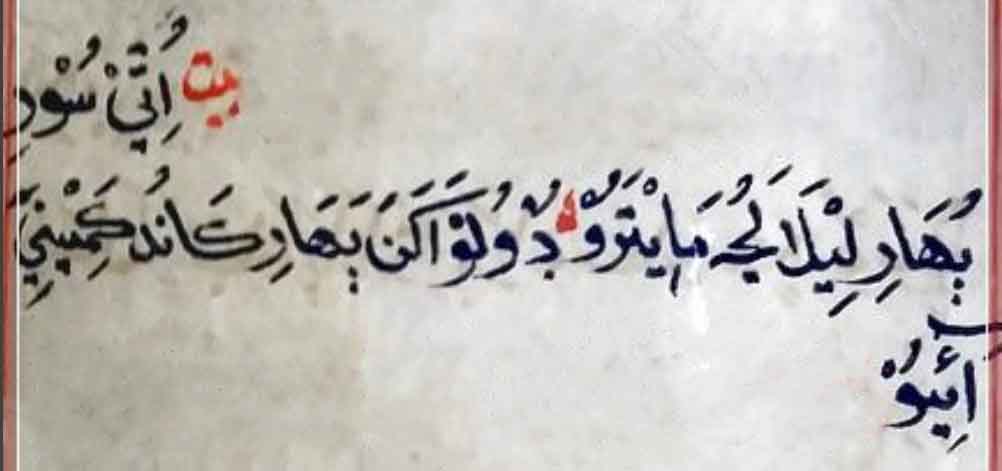 بيت اُتيْ سُوْرِ
بُهَارِ لِيْلَا لَڄُہ مَ ايْتَرُوْ دُ وُلَوْ اَکَنِ بَهَارِ کَانْدُ کَمِيْنِيَ
آئِيوْ